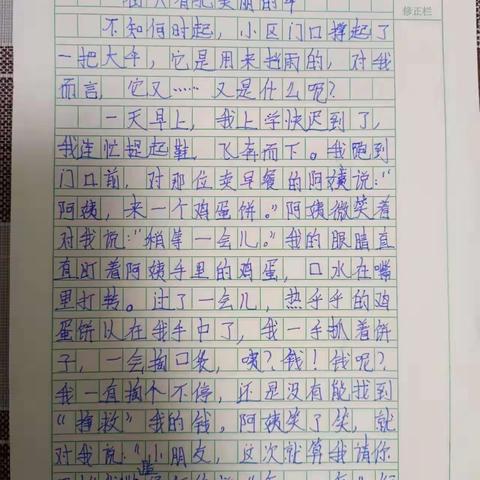 修正栏
不知何时起，小区门口撑起了
一把大伞，它是用来挡雨的，对我
而言，它又……又是什么呢？
一天早上，我上学快迟到了，
我连忙提起鞋，飞奔而下。我跑到
门口前，对那位卖早餐的阿姨说：“
阿姨，来一个鸡蛋饼。”阿姨微笑着
对我说：“稍等一会儿。”我的眼睛直
直盯着阿姨手里的鸡蛋，口水在嘴
里打转。过了一会儿，热乎乎的鸡
蛋饼以在我手中了，我一手抓着饼
子，一会掏口袋，咦？钱！钱呢？
我一直掏个不停，还是没有能找到
“拯救”我的钱。阿姨笑了笑，就
对我说：“小朋友，这次就算我请你